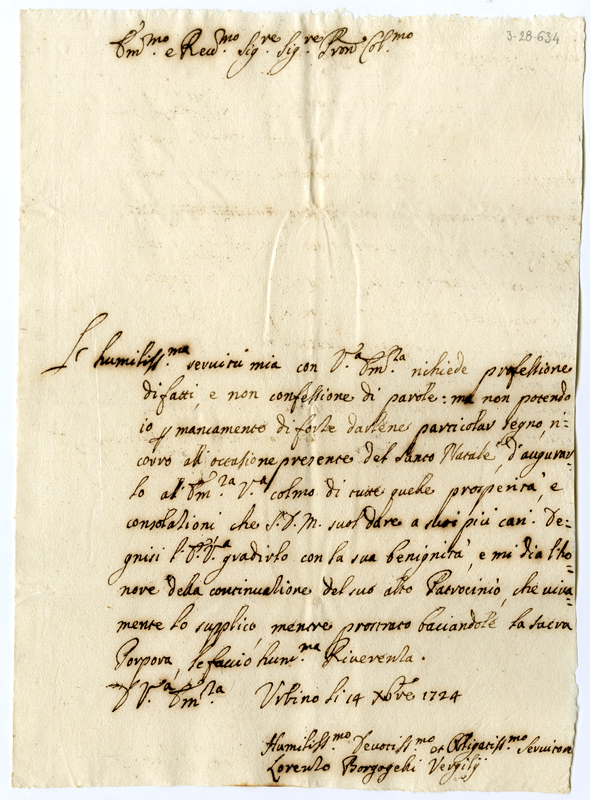 3-28-634
Em.mo e Reu.mo Sig.re Sig.re Pron Col.mo
La humiliss.ma seruitù mia con V.a Em.za richiede professione
di fatti, e non confessione di parole: ma non potendo
io p mancamento di forze darlene particolar segno, ri=
corro all'occasione presente del Santo Natale, d'augurar=
lo all'Em.za V.a colmo di tutte quelle prosperità, e
consolationi che S. D. M. suol dare a suoi più cari. De=
gnisi l'E. V.a gradirlo con la sua benignità, e mi dia l'ho=
nore della continuatione del suo alto Patrocinio, che viua=
mente lo supplico, mentre prostrato baciandole la sacra
Porpora, le faccio hum.ma Riuerenza.
D V.a Em.za Vrbino li 14 Xbre 1724
Humiliss.mo Deuotiss.mo et Obligatiss.mo Seruitore
Lorenzo Borgogelli Vergilij